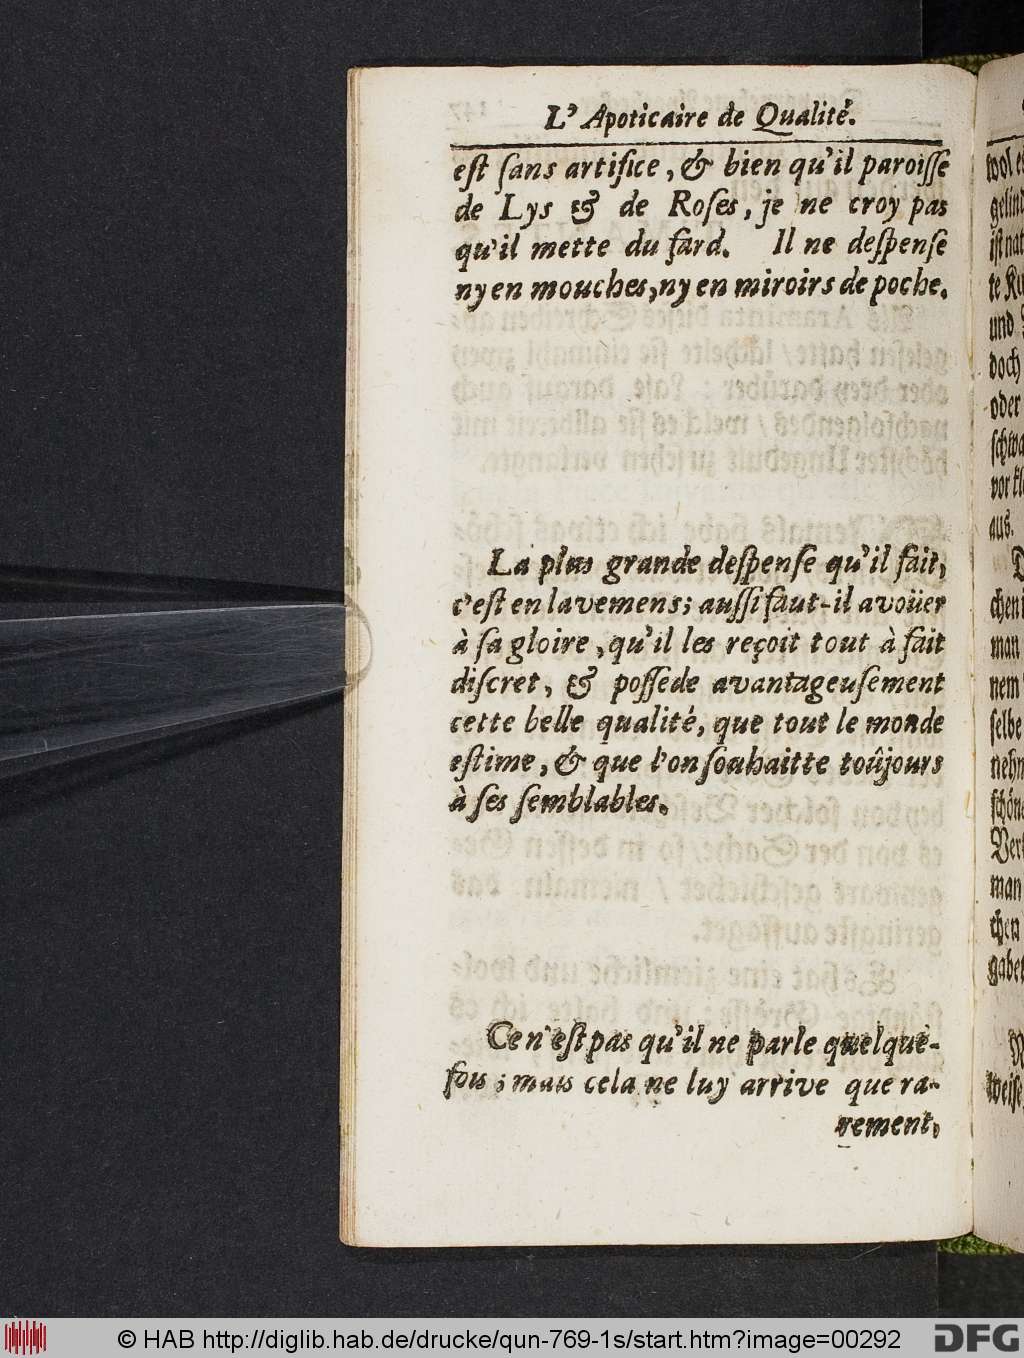 L' Apoticaire de Qualité.
eſt ſans artifice, & bien qu'il paroiſſe
de Lys & de Roſes, je ne croy pas
qu'il mette du fard. Il ne deſpenſe
ny en mouches, ny en miroirs de poche.
La plus grande deſpenſe qu'il fait,
c'eſt en lavemens; auſſi faut-il avoüer
à ſa gloire, qu'il les reçoit tout à fait
diſcret, & poſſede avantageuſement
cette belle qualité, que tout le monde
eſtime, & que l'on ſouhaitte toûjours
à ſes ſemblables.
Ce n'eſt pas qu'il ne parle quelque-
fois; mais cela ne luy arrive que ra-
rement,
und
doch
oder
aus.
man
nem
ſelbe
man
chen
© HAB http://diglib.hab.de/drucke/qun-769-1s/start.htm?image=00292
DFG